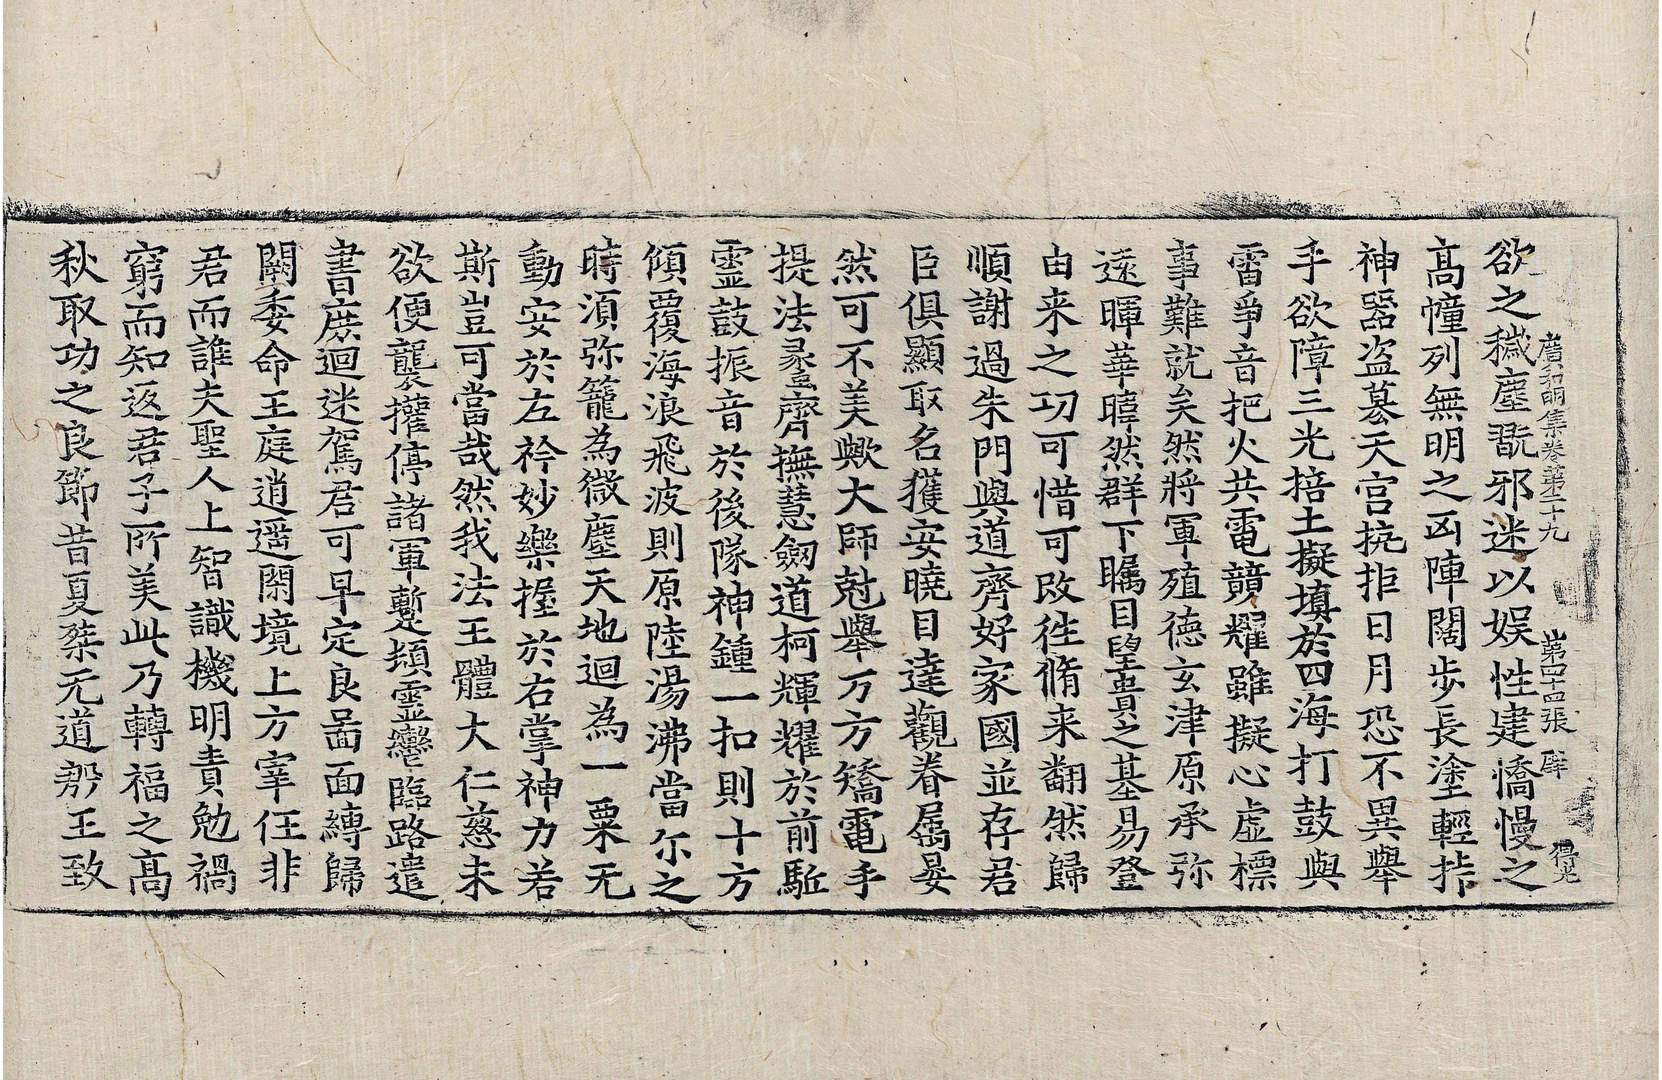 廣弘明集卷第二十九 第四十四張 廦 得光
欲之穢塵翫邪迷以娛性建憍慢之
高幢列無明之凶陣闊步長塗輕㧗
神器盜募天宮抗拒日月恐不異舉
手欲障三光掊土擬填於四海打鼓與
雷爭音把火共電競耀雖擬心虛標
事難就矣然將軍殖德玄津原承弥
遠暉華暐然群下矚目望貴之基易登
由来之功可惜可改徃脩来翻然歸
順謝過朱門與道齊好家國並存君
臣俱顯取名獲安曉目達觀眷屬晏
然可不美歟大師剋舉万方矯電手
提法䗍齊撫慧劒道柯輝耀於前駈
靈鼓振音於後隊神鍾一扣則十方
傾覆海浪飛波則原陸湯沸當尒之
時湏弥籠為微塵天地迴為一粟无
動安於左衿妙樂握於右掌神力若
斯豈可當哉然我法王體大仁慈未
欲便襲權停諸軍蹔頓靈轡臨路遣
書庶迴迷駕君可早定良啚面縛歸
闕委命王庭逍遥閑境上方宰任非
君而誰夫聖人上智識機明責勉禍
窮而知返君子所美此乃轉福之高
秋取功之良節昔夏桀无道𣪊王致